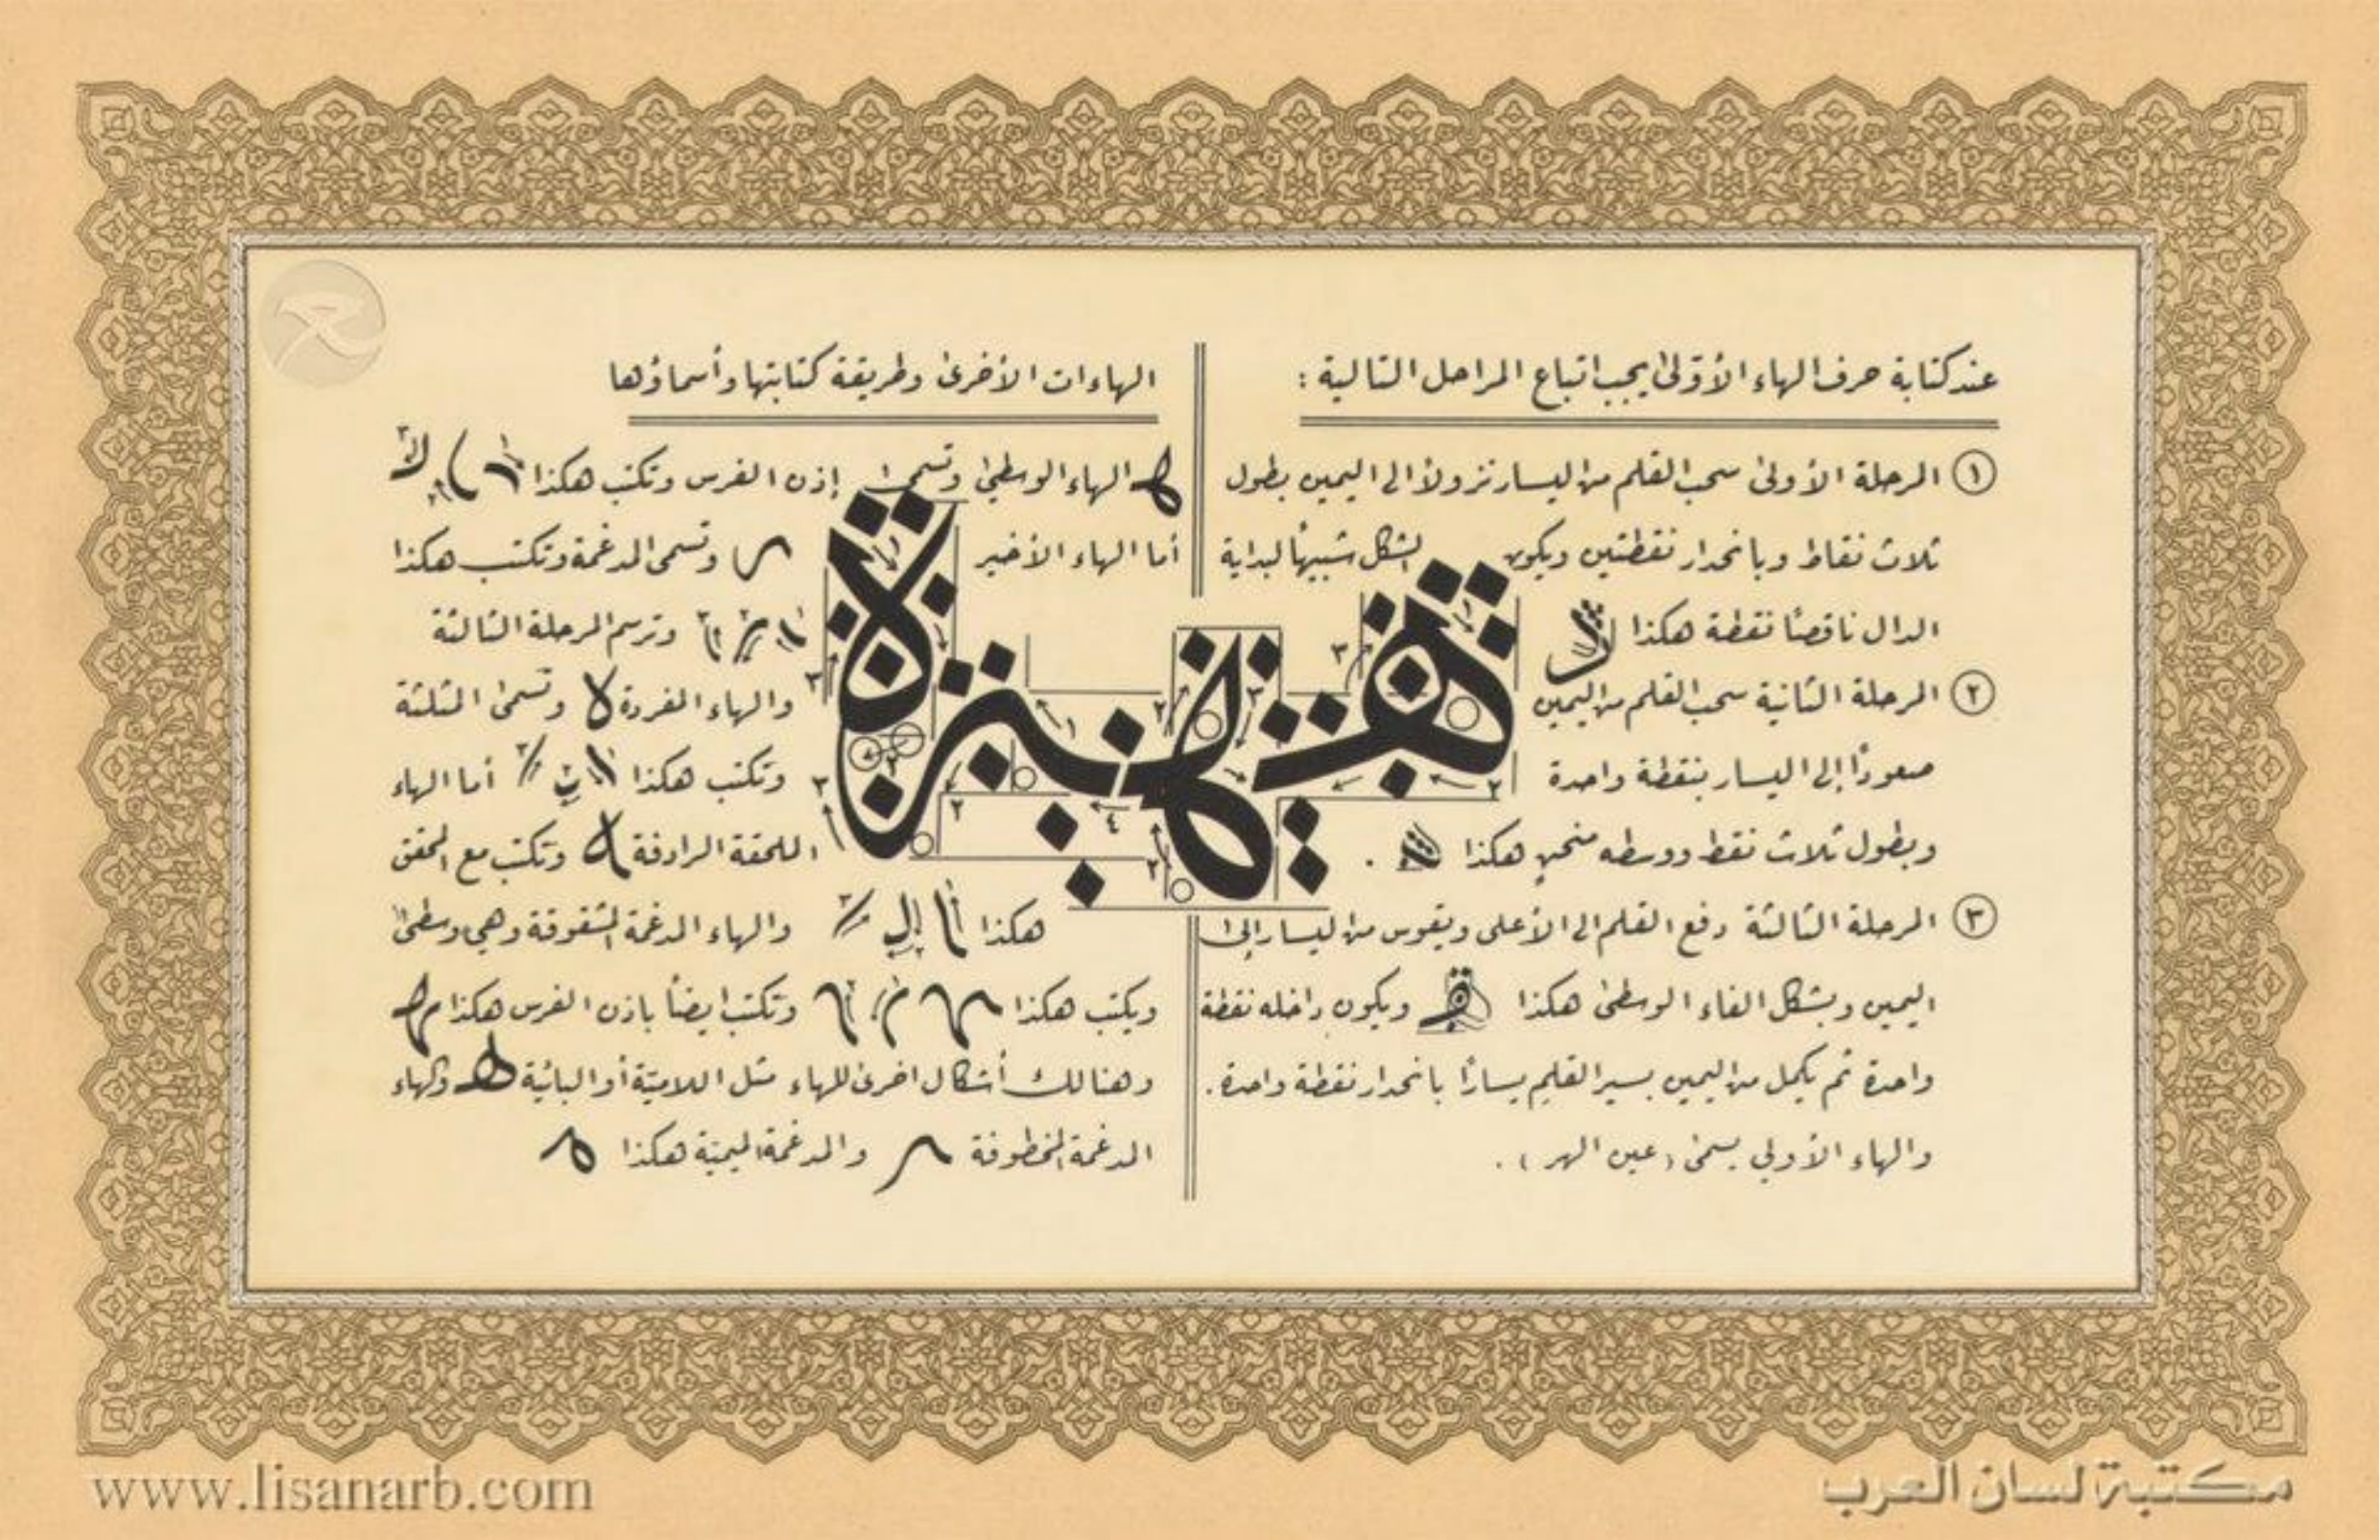 عند كتابة حرف الهاء الأولى يجب اتباع المراحل التالية :
١ المرحلة الأولى سحب القلم من اليسار نزولاً الى اليمين بطول
ثلاث نقاط وبانحدار نقطتين ويكون الشكل شبيهاً لبداية
الدال ناقصاً نقطة هكذا
٢ المرحلة الثانية سحب القلم من اليمين
صعوداً إلى اليسار بنقطة واحدة
وبطول ثلاث نقط ووسطه منحنٍ هكذا .
٣ المرحلة الثالثة دفع القلم الى الأعلى ويقوس من اليسار إلى
اليمين وبشكل الفاء الوسطى هكذا ويكون داخله نقطة
واحدة ثم يكمل من اليمين بسير القلم يساراً بانحدار نقطة واحدة .
والهاء الأولى يسمى ( عين الهر ) .
الهاءات الأخرى وطريقة كتابتها وأسماؤها
الهاء الوسطى وتسمى إذن الفرس وتكتب هكذا
أما الهاء الأخير وتسمى المدغمة وتكتب هكذا
وترسم المرحلة الثالثة
والهاء المفردة ه وتسمى المثلثة
وتكتب هكذا أما الهاء
الملحقة الرادفة وتكتب مع المحقق
هكذا والهاء المدغمة المشقوقة وهي وسطى
ويكتب هكذا وتكتب ايضاً باذن الفرس هكذا
وهنالك أشكال اخرى للهاء مثل اللاميّة أو البائية والهاء
المدغمة المخطوفة والمدغمة الميميّة هكذا
www.lisanarb.com
مكتبة لسان العرب